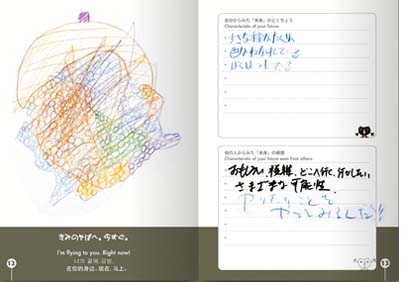 きみのそばへ。今すぐ。
I'm flying to you. Right now!
너의 곁에, 금방.
在你的身边。现在, 马上。
12
自分からみた「未来」のとくちょう
Characteristic of your future.
他の人からみた「未来」の感想
Characteristic of your future seen from others.
おもしろい、複雑、どこへ行く、何がしたい、
さまざまな可能性、
やりたいことを
やってみるんだ!!
13